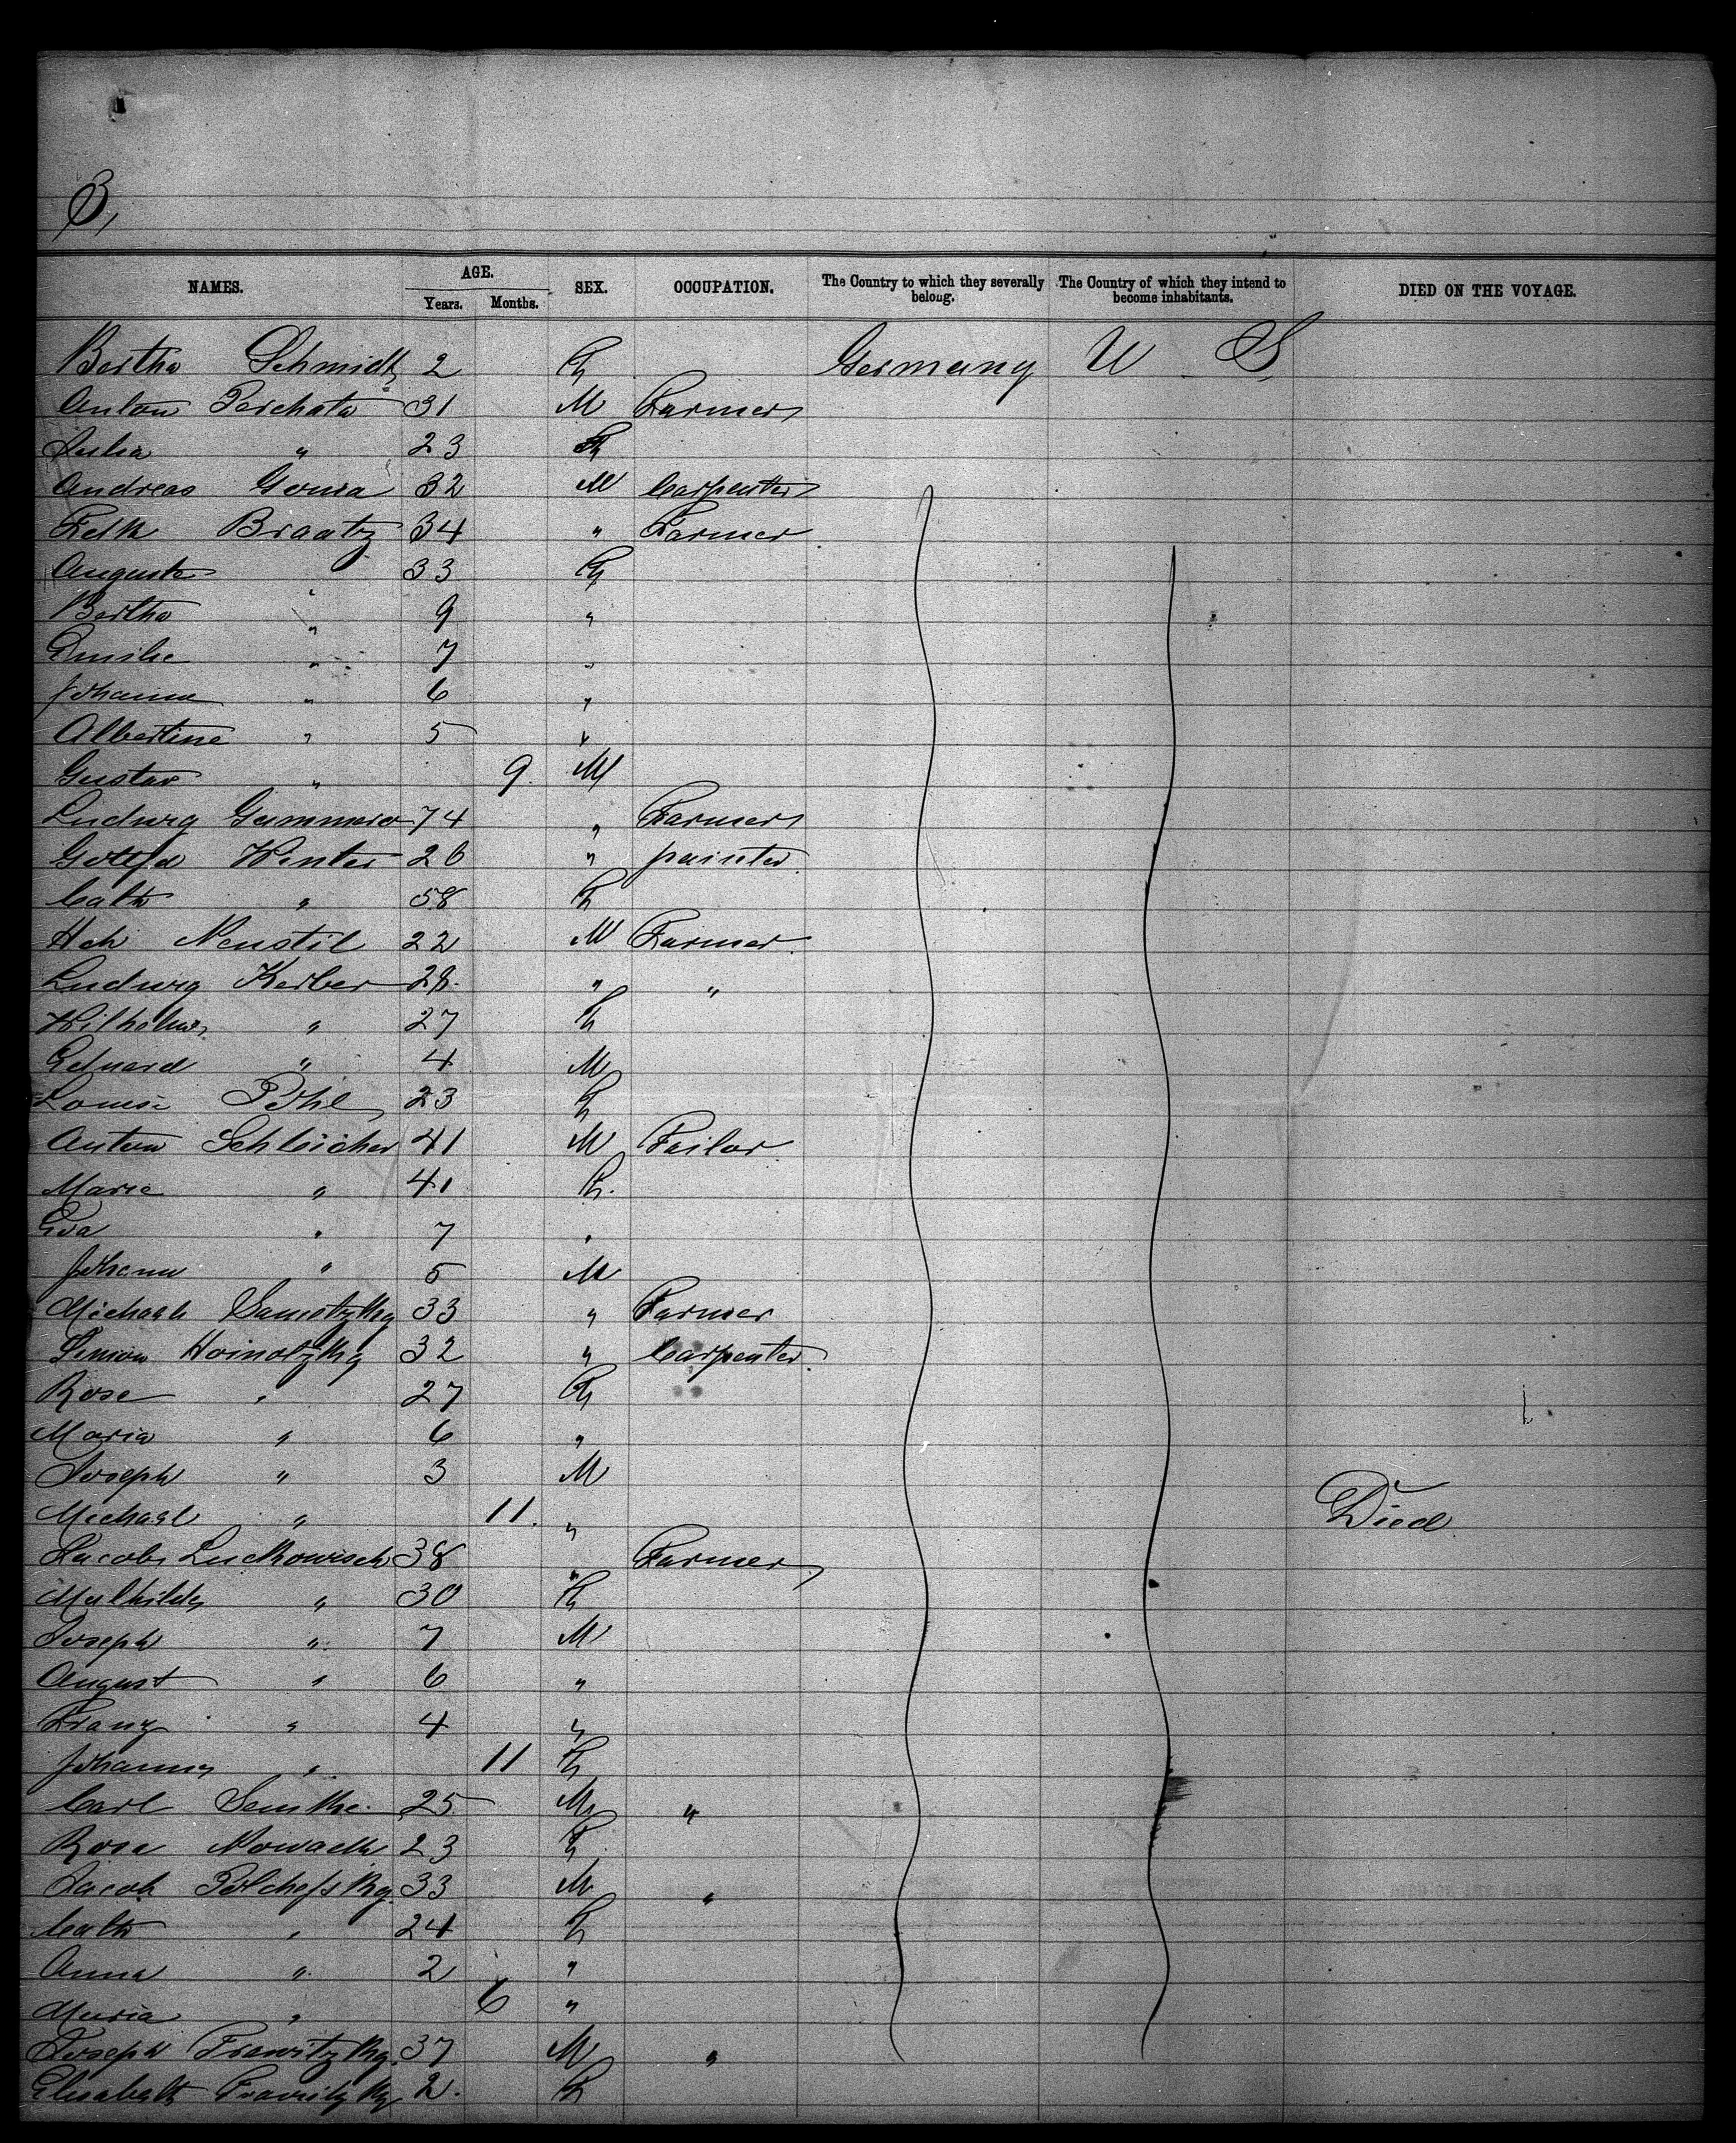 3,
NAMES. AGE. Years. Months. SEX. OCCUPATION. The Country to which they severally belong. The Country of which they intend to become inhabitants. DIED ON THE VOYAGE.
Bertha Schmidt 2 F Germany U S
Anton Perchata 31 M Farmer
Julia " 23 F
Andreas Gonia 32 M Carpenter
Braatz 34 " Farmer
Auguste " 33 F
Bertha " 9 "
Emilie " 7 "
Johanna " 6 "
Albertine " 5 "
Gustav " 9. M
Ludwig Gummero 74 " Farmer
Gottfd Winter 26 " painter
Cath " 58 F
Hch Neustil 22 M Farmer
Ludwig Kerber 28. " "
Wilhelm " 27 F
Eduard " 4 M
Louise Pohl 23 F
Anton Schleicher 41 M Tailor
Marie " 41 F.
Eva " 7 "
Johann " 5 M
Michael Samotzky 33 " Farmer
Simon Hoinotzky 32 " Carpenter.
Rose " 27 F
Maria " 6 "
Joseph " 3 M
Michael " 11. " Died
Jacob Luckowisch 38 " Farmer
Mathilde " 30 F
Joseph " 7 M
August " 6 "
Franz " 4 "
Johanna " 11 F
Carl Semke. 25 M "
Rosa Nowack 23 F
Jacob Polchefsky. 33 M "
Cath " 24 F
Anna " 2 "
Maria " 6 "
Joseph Trawitzky. 37 M "
Elisabeth Trawitzky 2. F